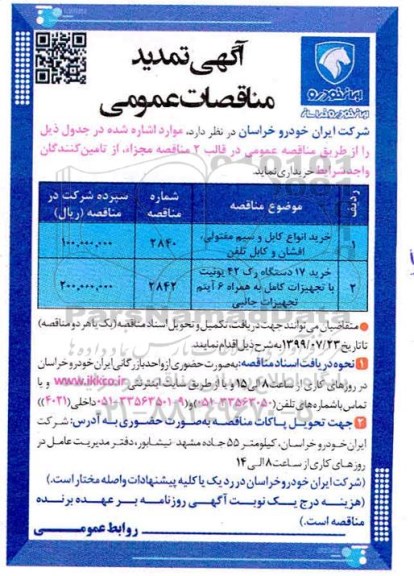 ایران خودرو
ایران خودرو خراسان
آگهی تمدید
مناقصات عمومی
شرکت ایران خودرو خراسان در نظر دارد، موارد اشاره شده در جدول ذیل
را از طریق مناقصه عمومی در قالب ۲ مناقصه مجزاء، از تامین‌کنندگان
واجدشرایط خریداری نماید.
ردیف موضوع مناقصه شماره مناقصه سپرده شرکت در مناقصه (ریال)
۱ خرید انواع کابل و سیم مفتولی، افشان و کابل تلفن ۲۸۴۰ ۱۰۰,۰۰۰,۰۰۰
۲ خرید ۱۷ دستگاه رک ۴۲ یونیت با تجهیزات کامل به همراه ۶ آیتم تجهیزات جانبی ۲۸۴۲ ۲۰۰,۰۰۰,۰۰۰
متقاضیان می‌توانند جهت دریافت، تکمیل و تحویل اسناد مناقصه (یک یا هر دو مناقصه)
تا تاریخ ۱۳۹۹/۰۷/۲۳ به شرح ذیل اقدام نمایند.
۱ نحوه دریافت اسناد مناقصه: به‌صورت حضوری از واحد بازرگانی ایران خودرو خراسان
در روزهای کاری از ساعت ۸ الی ۱۵ و یا از طریق سایت اینترنتی www.ikkco.ir و یا
تماس با شماره های تلفن (۳۳۵۶۳۰۵۰-۰۵۱) و (۹-۳۳۵۶۳۵۰۱-۰۵۱ داخلی (۴۰۲۱))
۲ جهت تحویل پاکات مناقصه به‌صورت حضوری به آدرس: شرکت
ایران خودرو خراسان، کیلومتر ۵۵ جاده مشهد نیشابور، دفتر مدیریت عامل در
روزهای کاری از ساعت ۸ الی ۱۴
(شرکت ایران خودرو خراسان در رد یک یا کلیه پیشنهادات واصله مختار است.)
(هزینه درج یک نوبت آگهی روزنامه بر عهده برنده
مناقصه است.)
روابط عمومی
ParsNamadData